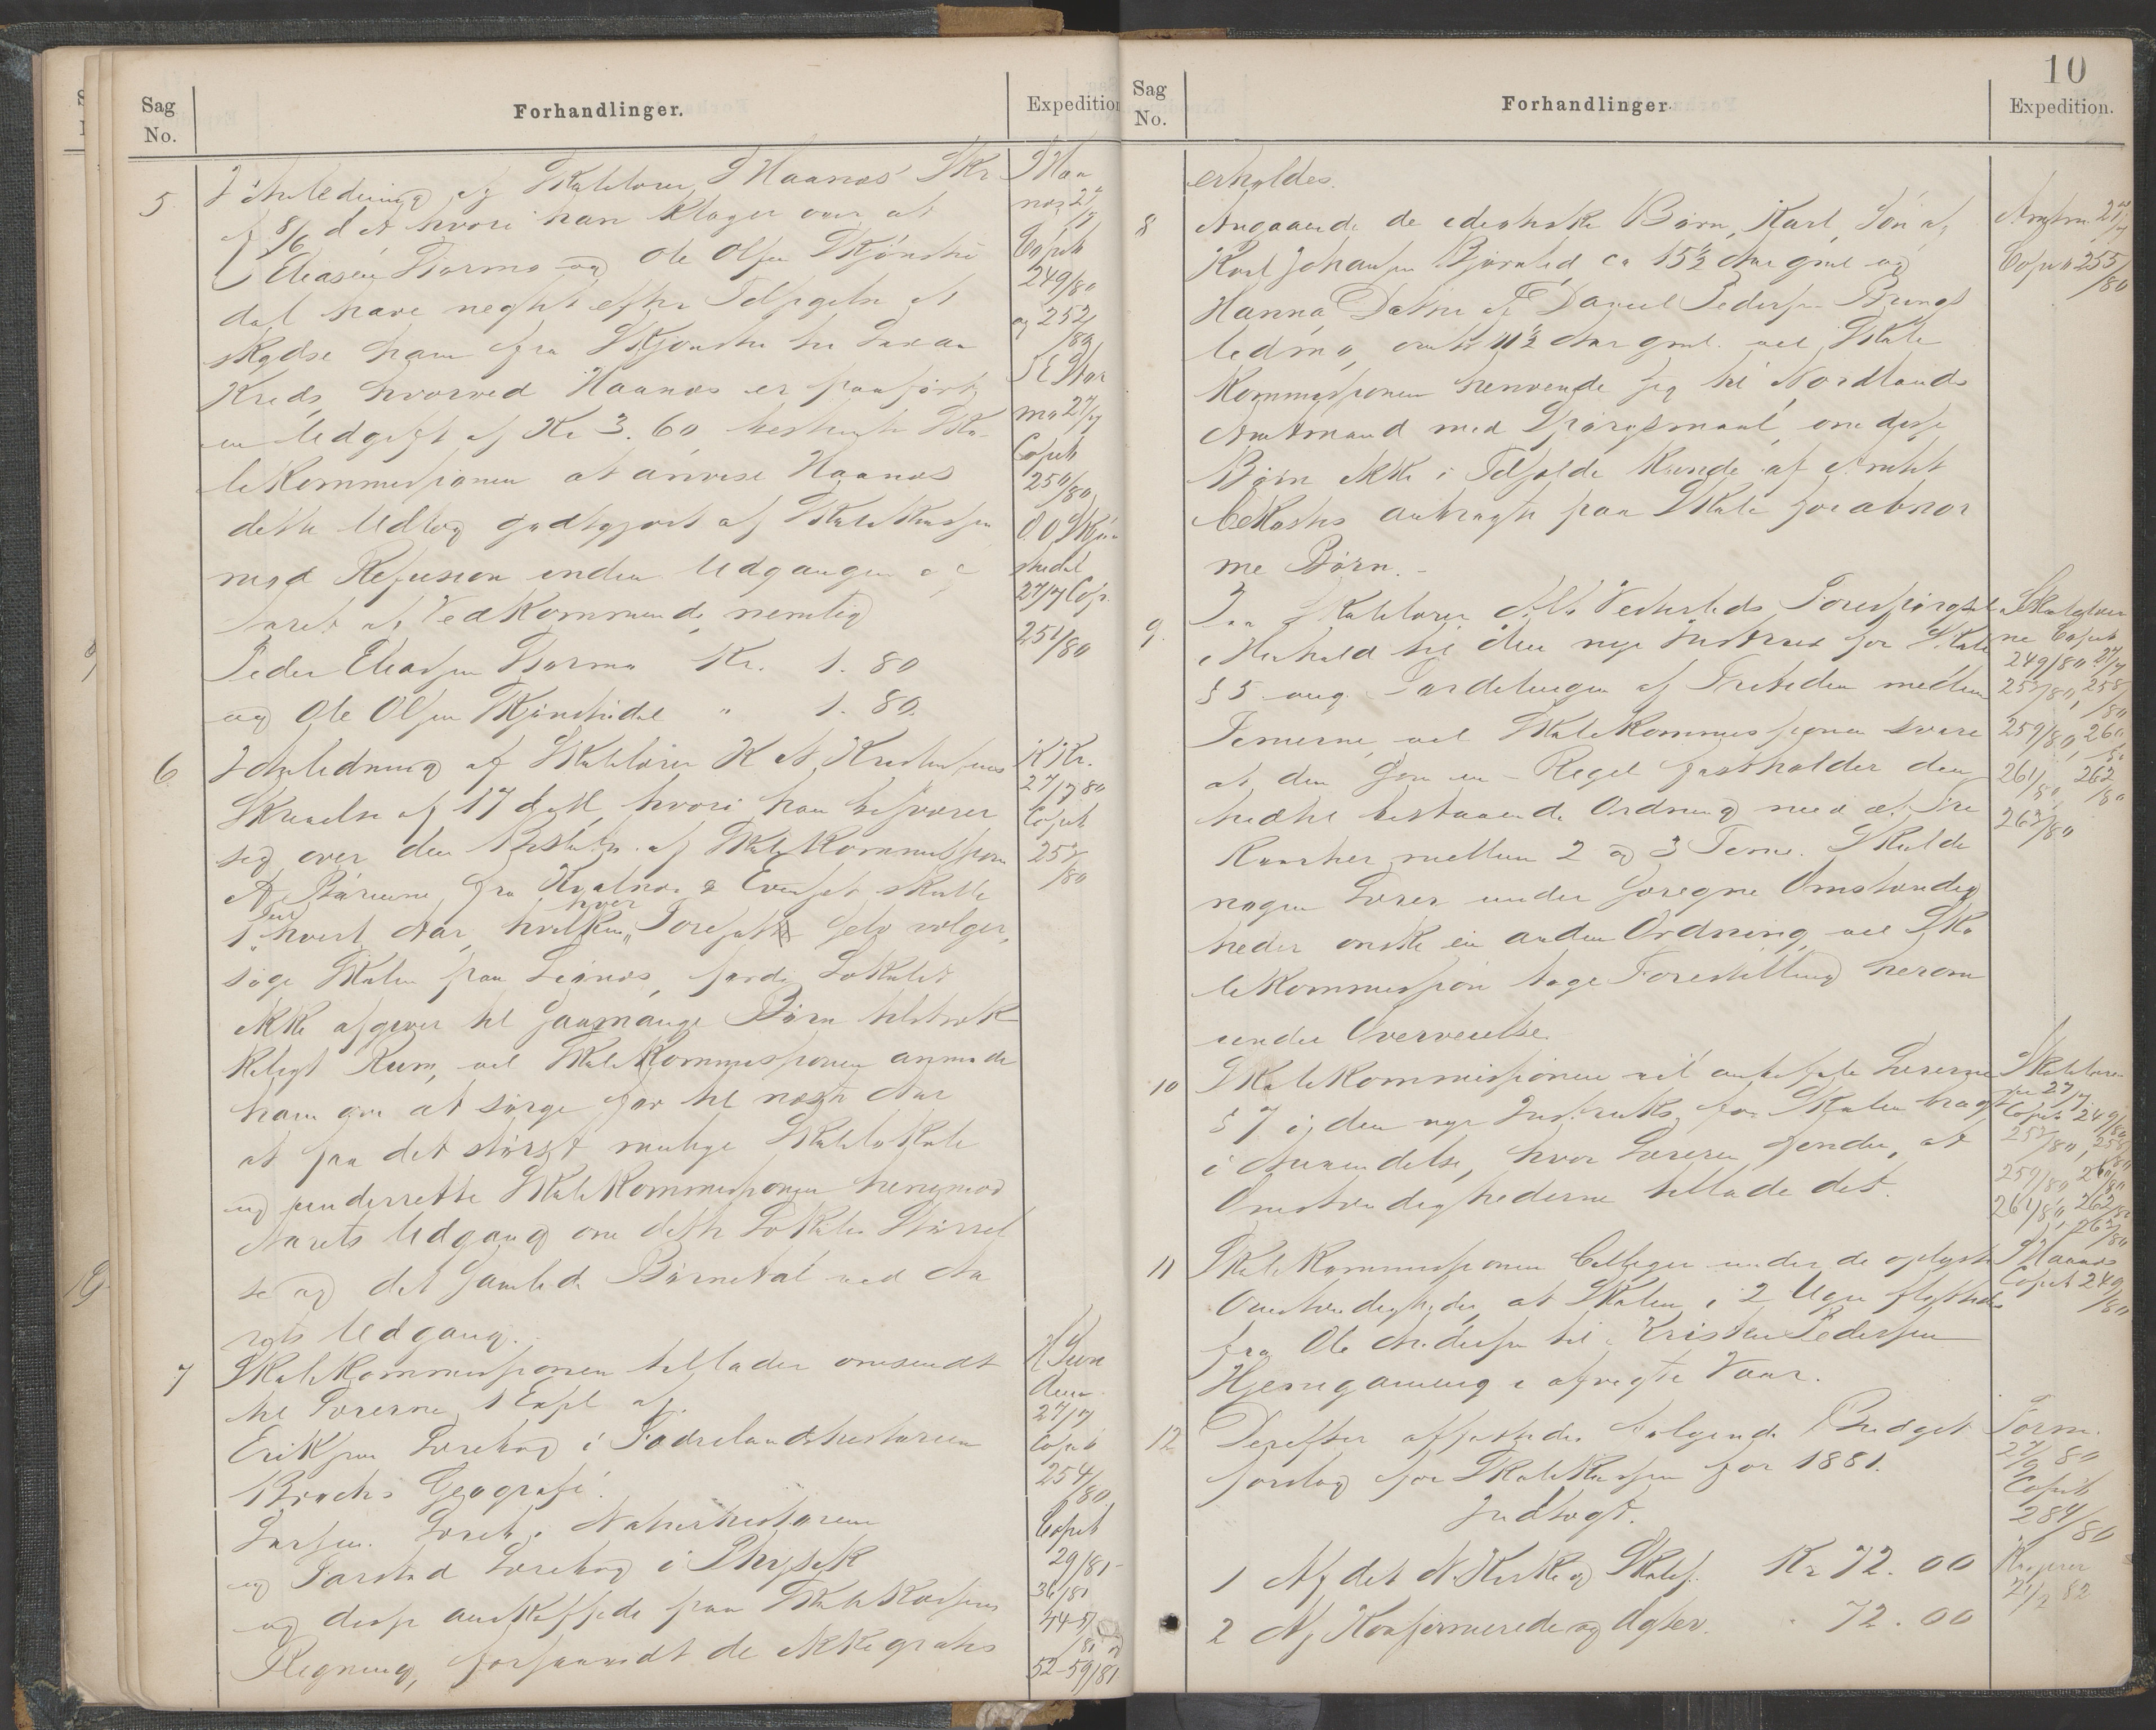 Sag
No.
Forhandlinger.
Expedition
5
I Anledning af Skolelærer Haanes' Skr
af 8/6 d A hvori han klager over at
Eliasen Stormo og Ole Olsen Skjønste
dal have negtet efter Tilsigelse at
skydse ham fra Skjønstu til Laxaa
Kreds, hvorved Haanes er paaført
en Udgift af Kr 3.60 besluttede Sko-
lekommissionen at anvise Haanes
dette Udlæg godtgjort af Skolekassen
mod Refusion inden Udgangen af
Aaret af Vedkommende nemlig
Peder Eliassen Stormo Kr. 1.80
og Ole Olsen Skjønstudal " 1.80.
Haa
næs 27
/7
Copieb
249/80
og 252
/80
P E Stor
mo 27/7
Copieb
250/80
O. O. Skjøn
studal
27/7 Cop.
251/80
6
I Anledning af Skolelærer K A Kristensens
Skrivelse af 17 d M, hvori han besværer
sig over den Beslutn. af Skolekommissionen
At Børnene fra Kvalnes & Evenset skulle
hver
1 hvert Aar, hvilken Foresatte selv vælger,
søge Skolen paa Leines, fordi Lokalet
ikke afgiver til saamange Børn tilstræk
keligt Rum, vil Skolekommissionen anmode
ham om at sørge for til næste Aar
at faa det størst mulige Skolelokale
og underrette Skolekommissionen henimod
Aarets Udgang om dette Lokales Størrel
se og det samlede Børnetal ved Aa
rets Udgang.
K Kr.
27/7 80
Copieb
253
/80
7
Skolekommissionen tillader omsendt
til Lærerne 1 Expl af
Eriksens Lærebog i Fædrelandshistorien
Brochs Geografi.
Læreb. i Naturhistorien
og Lærebog i Physik
og disse anskaffede paa Skolekassens
Regning, forsaavidt de ikke gratis
27/7
Copieb
254/80
Copieb
29/81-
36/81
44-51
/81 og
52-59/81
Sag
No.
Forhandlinger.
10
Expedition.
erholdes.
8
Angaaende de idiotiske Børn, Karl, Søn af
Karl Johansen Bjørnlid ca 15½ Aar gml og
Hanna, Datter af Daniel Pedersen Brungt
ledmo, omtr 11½ Aar gml. vil Skole
Kommissionen henvende sig til Nordlands
Amtmand med Spørgsmaal, om disse
Børn ikke i Tilfælde kunde af Amtet
bekostes anbragte paa Skole for abnor
me Børn.-
Amtm. 27/7
Copieb 255
/80
9.
Paa Skolelærer Vesterlids Forespørgsel
i Henhold til den nye Instrux for Skolen
§ 5 ang. Fordelingen af Fritiden mellem
Timerne, vil Skolekommissionen svare
at den som en Regel fastholder den
hidtil bestaaende Ordning med et Fri
kvarter mellem 2 og 3 Time. Skulde
nogen Lærer under særegne Omstændig
heder ønske en anden Ordning, vil Sko
lekommission tage Forestilling herom
under Overveielse.
Skolelærer
ne Copieb
249/80 27/7
253/80, 258
/80
259/80, 260
261/80, 262
/80
263/80
10
Skolekommissionen vil anbefale Lærerne
§ 7 i den nye Instruks for Skolen bragt
i Anvendelse, hvor Læreren finder, at
Omstændighederne tillade det.
Skolelærer
ne 27/7
Copieb 249/80
253/80, 258/80
259/80 260/80
261/80, 262/80
263/80
11
Skolekommissionen billiger under de oplyste
Omstændigheder, at Skolen i 2 Uger flyttedes
fra Ole Andersen til Kristen Pedersen
Hjemgaming i afvigte Vaar.
Haanes
Copieb 249
/80
12
Derefter affattedes følgende Budget
forslag for Skolekassen for 1881.
Indtægt.
1 Af det N. Kirke og Skolef. Kr 72.00
2 Af Konfirmerede og Ægtev. " 72.00
Form.
27/7 80
Copieb
284/80